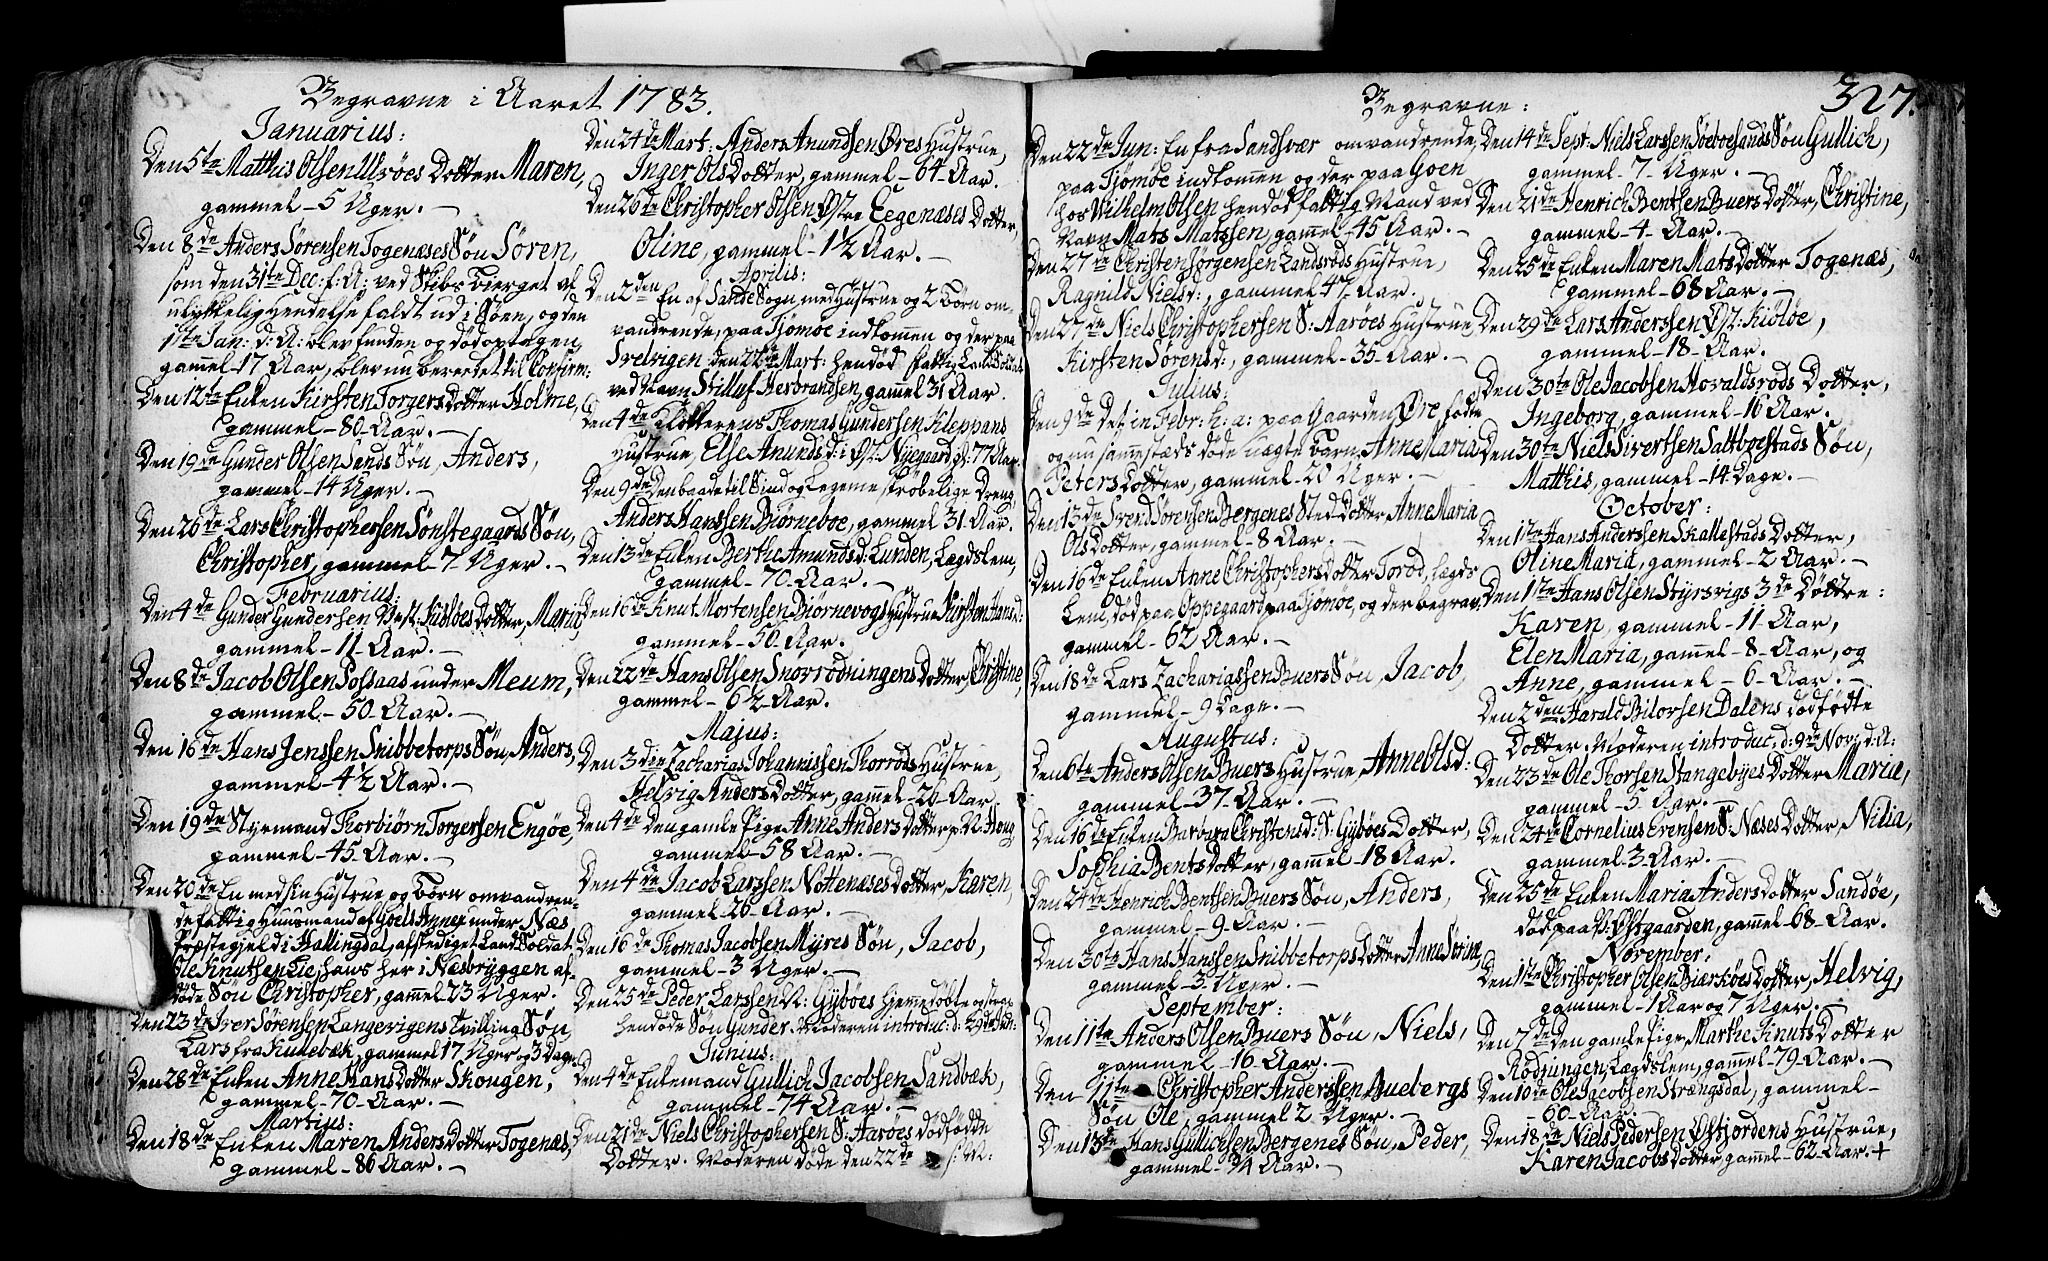 Begravne i Aaret 1783.
Januarius:
Den 5te Matthis Olsen Ulvöes Dotter Maren,
gammel 5 Uger.
Den 8de Anders Sörensen Togenæses Sön Sören,
som den 31te Dec: f: A: ved Skibs Bierget af
ulykkelig Hendelse faldt ud i Söen, og den
1te Jan: d: A: blev funden og död optagen,
gamel 17 Aar, blev nu beredet til Confirm:
Den 12te Enken Kirsten Torgers Dotter Holme,
gammel 80 Aar.
Den 19de Gunder Olsen Sands Sön, Anders,
gammel 14 Uger.
Den 26de Lars Christophersen Sönstegaards Sön,
Christopher, gammel 7 Uger.
Februarius:
Den 4de Gunder Gundersen Vest: Kiölöes Dotter, Maria,
gammel 11 Aar.
Den 8de Jacob Olsen Possaas under Meum,
gammel 50 Aar.
Den 16de Hans Jenssen Snibbetorps Sön, Anders,
gammel 4½ Aar.
Den 19de Styrmand Thorbiörn Torgersen Engöe,
gammel 45 Aar.
Den 20de En med sin Hustrue og Börn omvandren-
de fattig Huusmand af Goels Annex under Næs
Præstegield i Hallingdal, afskediget Land Soldat
Ole Knutsen Lie, hans her i Næsbryggen af-
döde Sön Christopher, gamel 23 Uger.
Den 23de Iver Sörensen Langevigens Tvilling Sön,
Lars fra Killebæk, gammel 17 Uger og 3 Dage.
Den 28de Enken Anne Hans Dotter Skougen,
gammel 70 Aar.
Martius:
Den 18de Enken Maren Anders Dotter Togenæs,
gammel 86 Aar.
Den 24de Mart: Anders Anundsen Öres Hustrue,
Inger Ols Dotter, gammel 64 Aar.
Den 26de Christopher Olsen Østre Eegenæses Dotter,
Oline, gammel 1½ Aar.
Aprilis:
Den 2den En af Sande Sogn med Hustrue og 2 Börn om-
vandrende, paa Tjömöe indkommen og der paa
Svelvigen den Mart: hendöd fattig Land Soldat
ved Navn Stilluf Herbrandsen, gamel 31 Aar.
Den 4de Klokkerens Thomas Gundersen Kleppans
Hustrue, Else Anundsd: i Øst: Nyegaard, gl: 77 Aar.
Den 9de Den baade til Sind og Legeme skröbelige Dreng
Anders Hanssen Biörneboe, gammel 31 Aar.
Den 13de Enken Berthe Amundsd: Lunden, Lægdslem,
gammel 70 Aar.
Den 16de Knut Mortensen Biörnevogs Hustrue Kirsten Hansd:
gammel 50 Aar.
Den 22de Hans Olsen Snorrödningens Dotter, Christine,
gammel 6½ Aar.
Majus:
Den 3die Zacharias Johannissen Thorröds Hustrue,
Helvig Anders Dotter, gamel 20 Aar
Den 4de Den gamle Pige Anne Anders Dotter N: Houg
gammel 58 Aar.
Den 4de Jacob Larssen Nöttenæses Dotter, Karen,
gammel 20 Aar.
Den 16de Thomas Jacobsen Myres Sön, Jacob,
gammel 3 Uger.
Den 25de Peder Larssen N: Gyböes hjemedöbte og strax
hendöde Sön Gunder. Moderen introduc: d: 29de Jun:
Junius:
Den 4de Enkemand Gullich Jacobsen Sandbæk,
gammel 74 Aar.
Den 21de Niels Christophersen S: Aaröes dödfödde
Dotter. Moderen döde den 22de
Begravne:
327.
Den 22de Jun: En fra Sandsvær omvandrende,
paa Tjömöe indkomen og der paa Goen
hos Wilhelm Olsen hendöd fattig Mand ved
Navn Mats Matssen, gamel 45 Aar.
Den 27de Christen Jörgensen Zandsröds Hustrue,
Ragnild Nielsd:, gammel 47 Aar.
Den 27de Niels Christophersen S: Aaröes Hustrue
Kirsten Sörensd:, gammel 35 Aar.
Julius:
Den 9de Det in Febr: h: a: paa Gaarden Öre födte
og nu samestæds döde uægte Barn, Anne Maria
Peters Dotter, gammel 20 Uger.
Den 13de Svend Sörensen Bergenes Sted Dotter Anne Maria
Ols Dotter, gammel 8 Aar.
Den 16de Enken Anne Christophers Dotter Toröd, Lægds
Lem, död paa Oppegaard paa Tjömöe, og der begrav:
gammel 62 Aar.
Den 18de Lars Zachariassen Buers Sön, Jacob,
gammel 9 Dage.
Augustus:
Den 6te Anders Olsen Buers Hustrue, Anne Olsd:
gammel 37 Aar.
Den 16de Enken Barbara Christensd: S: Gyböes Dotter,
Sophia Bents Dotter, gammel 18 Aar.
Den 24de Henrich Bentsen Buers Sön, Anders,
gammel 9 Aar.
Den 30te Hans Hanssen Snibbetorps Dotter Anne Sörina,
gammel 3 Uger.
September:
Den 11te Anders Olsen Buers Sön, Niels,
gammel 16 Aar.
Den 11te Christopher Anderssen Buebergs
Sön Ole, gammel 2 Uger.
Den 13de Hans Gullichsen Bergenes Sön, Peder,
gammel Aar.
Den 14de Sept: Niels Larssen Söeboesands Sön Gullich,
gammel 7 Uger.
Den 21de Henrich Bentsen Buers Dotter, Christine,
gammel 4 Aar.
Den 25de Enken Maren Mats Dotter Togenæs,
gammel 68 Aar.
Den 29de Lars Anderssen Øst: Kiölöe,
gammel 18 Aar.
Den 30te Ole Jacobsen Hovaldsröds Dotter,
Ingeborg, gammel 16 Aar.
Den 30te Niels Sivertsen Saltboestads Sön,
Matthis, gammel 14 Dage.
October:
Den 1te Hans Anderssen Skallestads Dotter,
Oline Maria, gammel 2 Aar.
Den 1te Hans Olsen Styrsvigs 3de Döttre:
Karen, gammel 11 Aar,
Elen Maria, gamel 8 Aar, og
Anne, gammel 6 Aar.
Den 2den Harald Bilovsen Dalens dödfödte
Dotter. Moderen introduc: d: 9de Nov: d: A:
Den 23de Ole Thorsen Stangebyes Dotter Maria,
gammel 5 Aar.
Den 24de Cornelius Evensen S: Næses Dotter, Nilia,
gammel 3 Aar.
Den 25de Enken Maria Anders Dotter Sandöe,
död paa N: Østgaarden, gamel 68 Aar.
November:
Den 1te Christopher Olsen Biærköes Dotter, Helvig,
gammel 1 Aar og 7 Uger.
Den 7de Den gamle Pige, Marthe Knuts Dotter
Rödningen, Lægdslem, gammel 79 Aar.
Den 10de Ole Jacobsen Strængsdal, gammel
60 Aar.
Den 18de Niels Pedersen Østjordens Hustrue,
Karen Jacobs Dotter, gammel 62 Aar. +